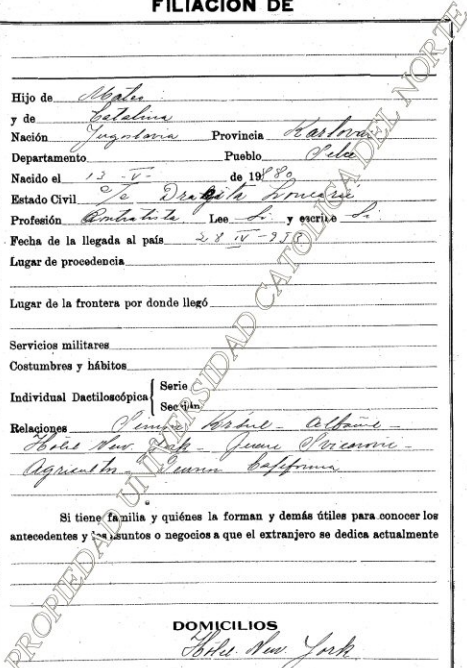 FILIACION DE
Hijo de Mateo
y de Catalina
Nación Jugoslavia Provincia Karlovac
Departamento Pueblo
Nacido el 13 - V - de 19880
Estado Civil c/c Dragita Loncarić
Profesión Contratista Lee Si y escribe Si
Fecha de la llegada al país 28 IV - 95
Lugar de procedencia
Lugar de la frontera por donde llegó
Servicios militares
Costumbres y hábitos
Individual Dactiloscópica { Serie
Sección
Relaciones
Hotel New York - Juan
Agricultor -
Si tiene familia y quiénes la forman y demás útiles para conocer los
antecedentes y los asuntos o negocios a que el extranjero se dedica actualmente
DOMICILIOS
Hotel New York
PROPIEDAD UNIVERSIDAD CATOLICA DEL NORTE